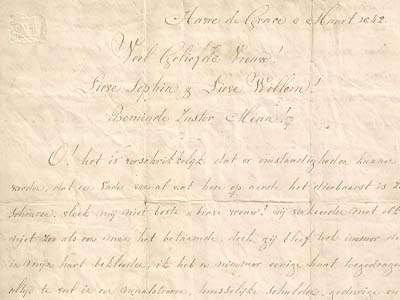 Havre de Grace 6 Maart 1842
Veel Geliefde Vrouw!
Lieve Sophia & Lieve Willem!
Beminde Zuster Mina!
O! het is verschrikkelijk dat er omstandigheden kunnen
worden, dat een Vader van al wat hem op aarde het dierbaarst is
scheuren, vloek mij niet beste & brave vrouw! wij verkeerden niet alt
mijst zoo als een man het betaamde, doch gij bleef toch immer de
in mijn hart bekleeden, ik heb u nimmer eenige haat toegedragen
altijd te veel in huisselijke schulden,